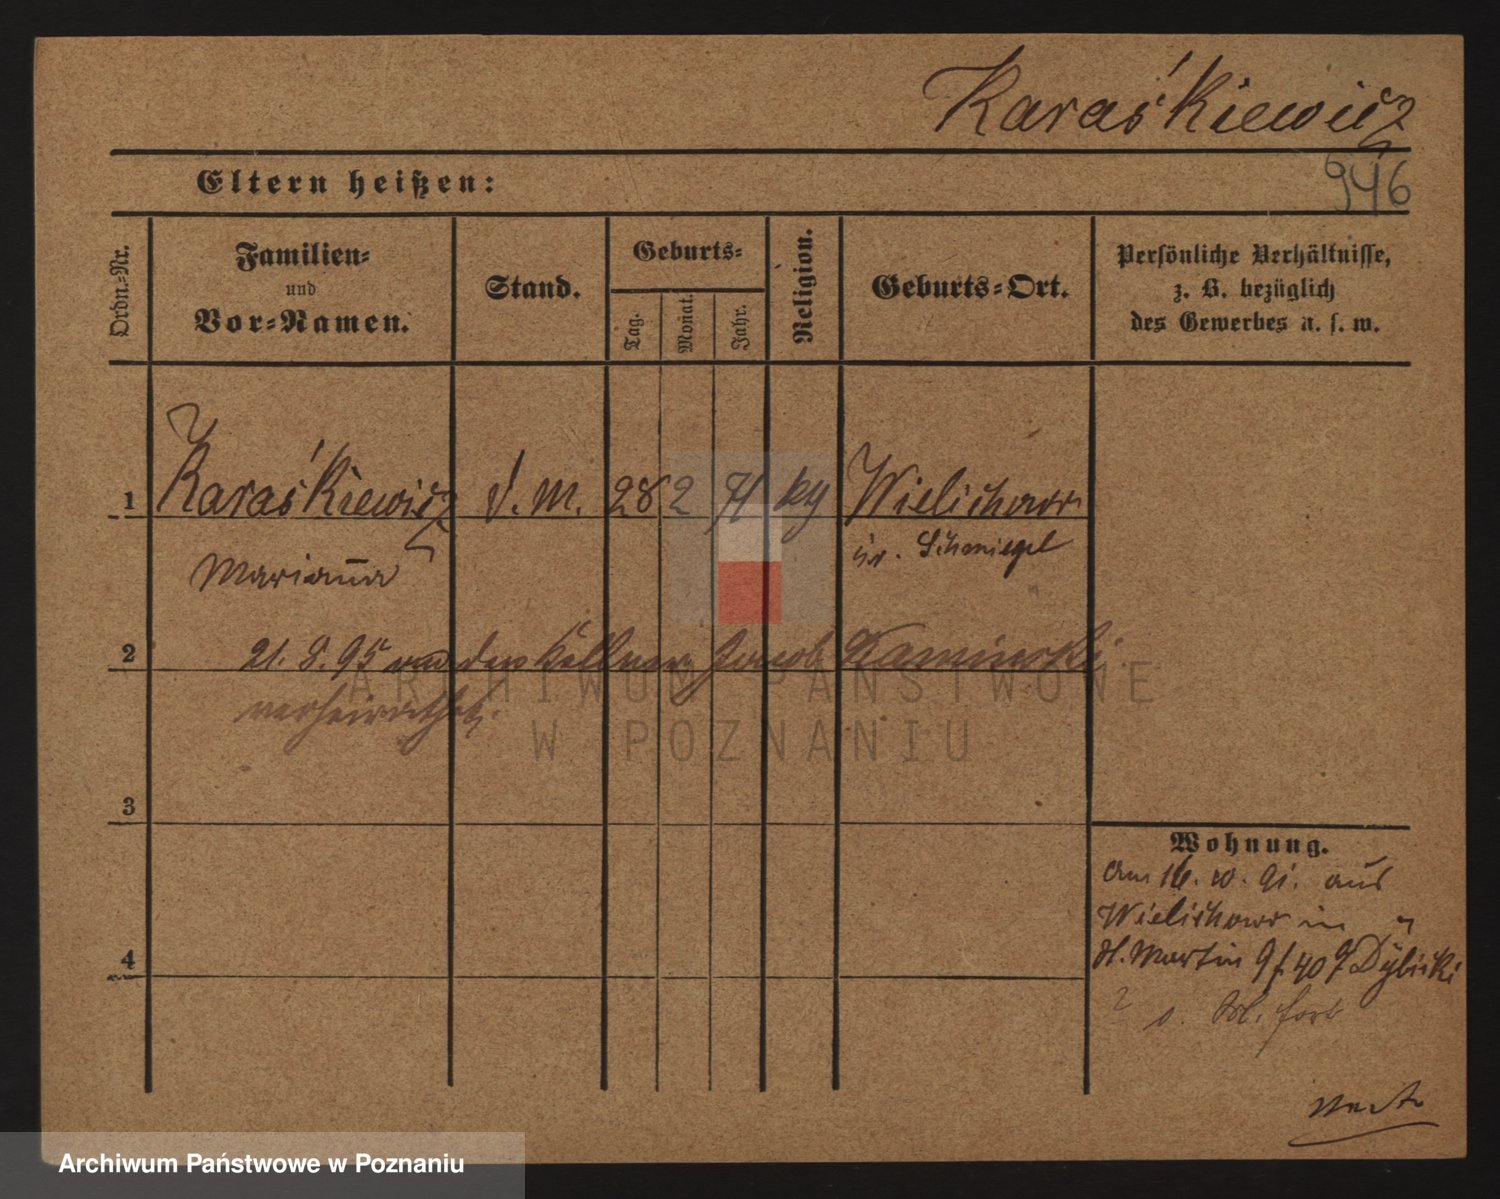 Karaśkiewicz
946
Eltern heißen:
Ordn.-Nr.
Familien-
und
Vor-Namen.
Stand.
Geburts-
Tag.
Monat.
Jahr.
Religion.
Geburts-Ort.
Persönliche Verhältnisse,
z. B. bezüglich
des Gewerbes u. s. w.
1 Karaśkiewicz d. M. 28 2 71 ky Wielichowo
Marianna
Kr. Schmiegel
2 21. 8. 95 den Kellner Jacob Kaminski
verheirathet.
3
4
Wohnung.
am 16. 10. 91. aus
Wielichowo in
St. Martin 40 Dybicki
fort
ARCHIWUM PAŃSTWOWE
W POZNANIU
Archiwum Państwowe w Poznaniu